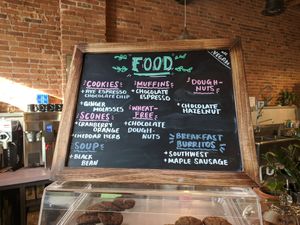 FOOD
VEGAN!
COOKIES
+ RYE ESPRESSO
CHOCOLATE CHIP
+ GINGER
MOLASSES
SCONES
+ CRANBERRY
ORANGE
+ CHEDDAR HERB
SOUP
+ BLACK
BEAN
MUFFINS
+ CHOCOLATE
ESPRESSO
WHEAT-
FREE
+ CHOCOLATE
DOUGH-
NUTS
DOUGH-
NUTS
+ CHOCOLATE
HAZELNUT
BREAKFAST
BURRITOS
+ SOUTHWEST
+ MAPLE SAUSAGE